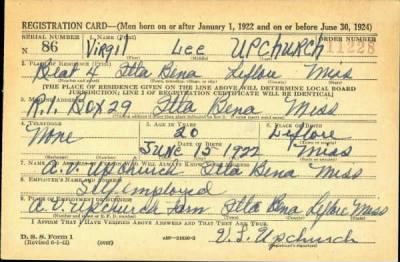 REGISTRATION CARD—(Men born on or after January 1, 1922 and on or before June 30, 1924)
SERIAL NUMBER 1. NAME (Print) ORDER NUMBER
86 Virgil Lee UPCHURCH 11228
(First) (Middle) (Last)
2. PLACE OF RESIDENCE (Print)
Beat 4 Itta Bena Leflore Miss
(Number and street) (Town, township, village, or city) (County) (State)
[THE PLACE OF RESIDENCE GIVEN ON THE LINE ABOVE WILL DETERMINE LOCAL BOARD
JURISDICTION; LINE 2 OF REGISTRATION CERTIFICATE WILL BE IDENTICAL]
3. MAILING ADDRESS
R.1 BOX 29 Itta Bena Miss
4. TELEPHONE 5. AGE IN YEARS 6. PLACE OF BIRTH
None 20 Leflore
DATE OF BIRTH
June 15 1922 Miss
7. NAME AND ADDRESS OF PERSON WHO WILL ALWAYS KNOW YOUR ADDRESS
A.V. Upchurch Itta Bena Miss
8. EMPLOYER'S NAME AND ADDRESS
Self employed
9. PLACE OF EMPLOYMENT OR BUSINESS
A.V. Upchurch Farm Itta Bena Leflore Miss
(Number and street or R. F. D. number) (Town) (County) (State)
I AFFIRM THAT I HAVE VERIFIED ABOVE ANSWERS AND THAT THEY ARE TRUE.
D. S. S. Form 1
(Revised 6-1-42) V. L. Upchurch